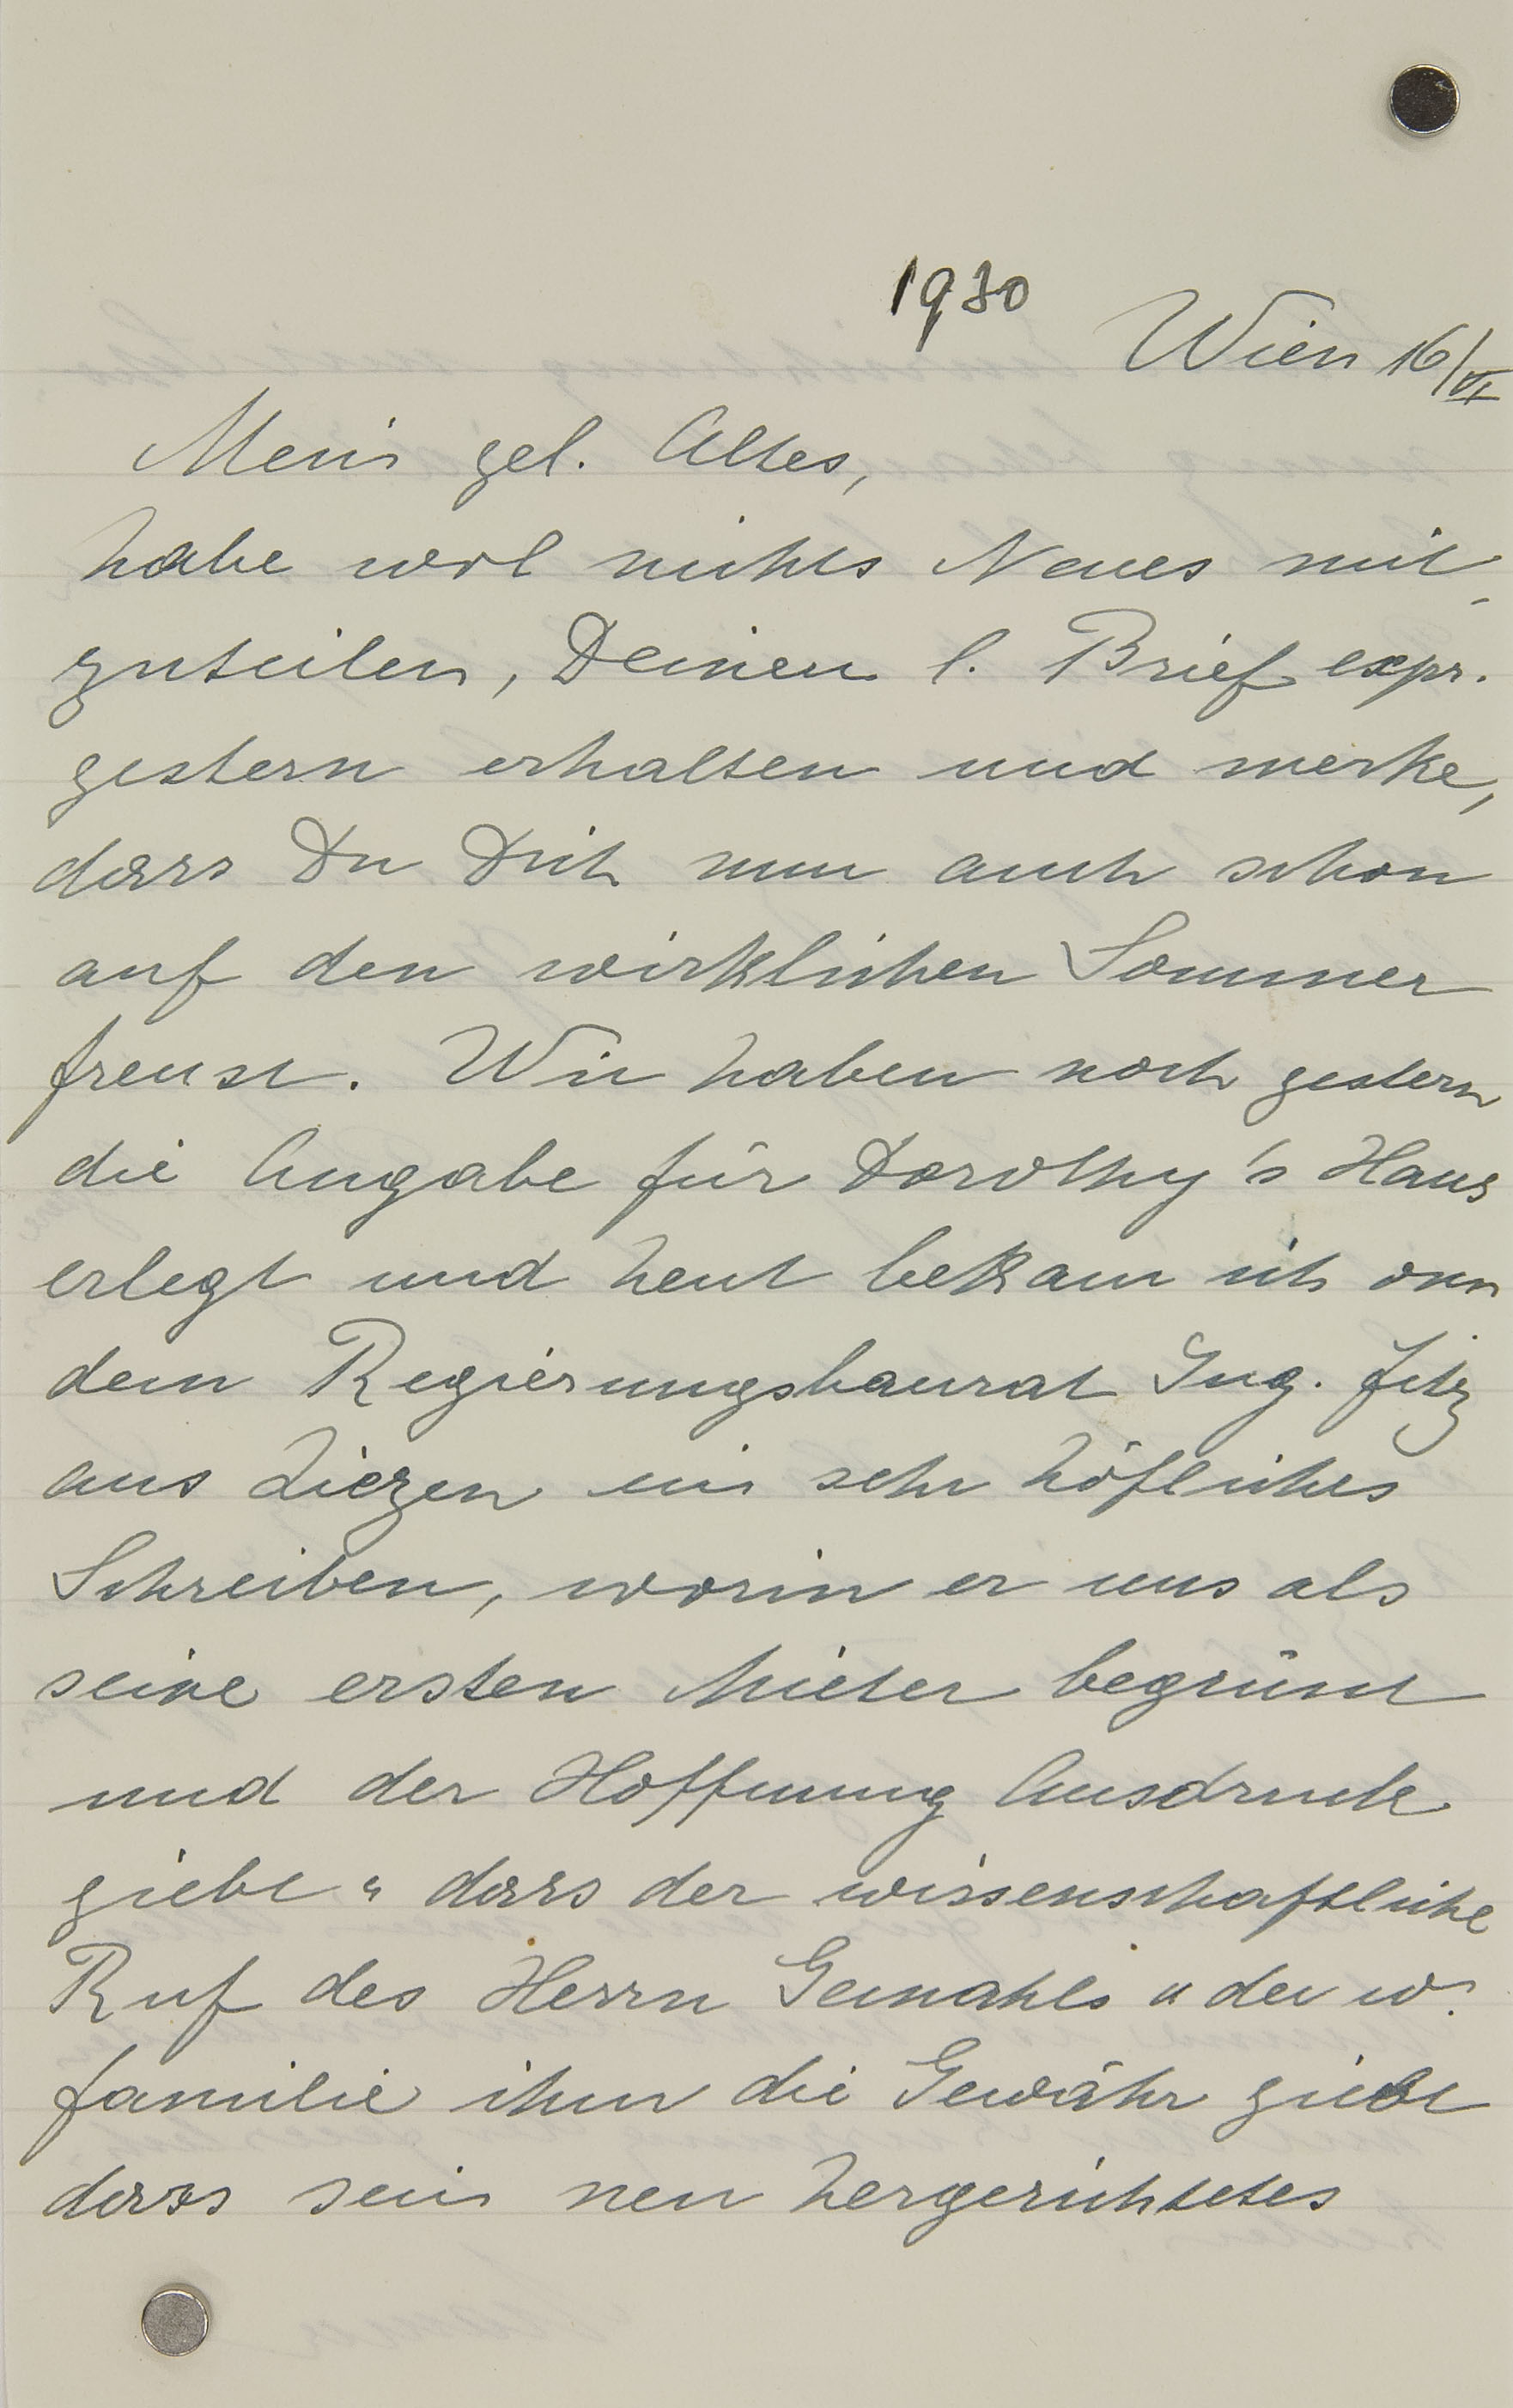 1930
Wien 16/VI
Mein gel. Altes,
habe wol nichts Neues mit-
zuteilen, Deinen l. Brief expr.
gestern erhalten und merke,
dass Du Dich nun auch schon
auf den wirklichen Sommer
freust. Wir haben noch gestern
die Angabe für Dorothy's Haus
erlegt und heut bekam ich von
dem Regierungsbaurat Ing. Fitz
aus Liezen ein sehr höfliches
Schreiben, worin er uns als
seine ersten Mieter begrüsst
und der Hoffnung Ausdruck
giebt "dass der wissenschaftliche
Ruf des Herrn Gemahls u der w.
Familie ihm die Gewähr giebt
dass sein neu hergerichtetes